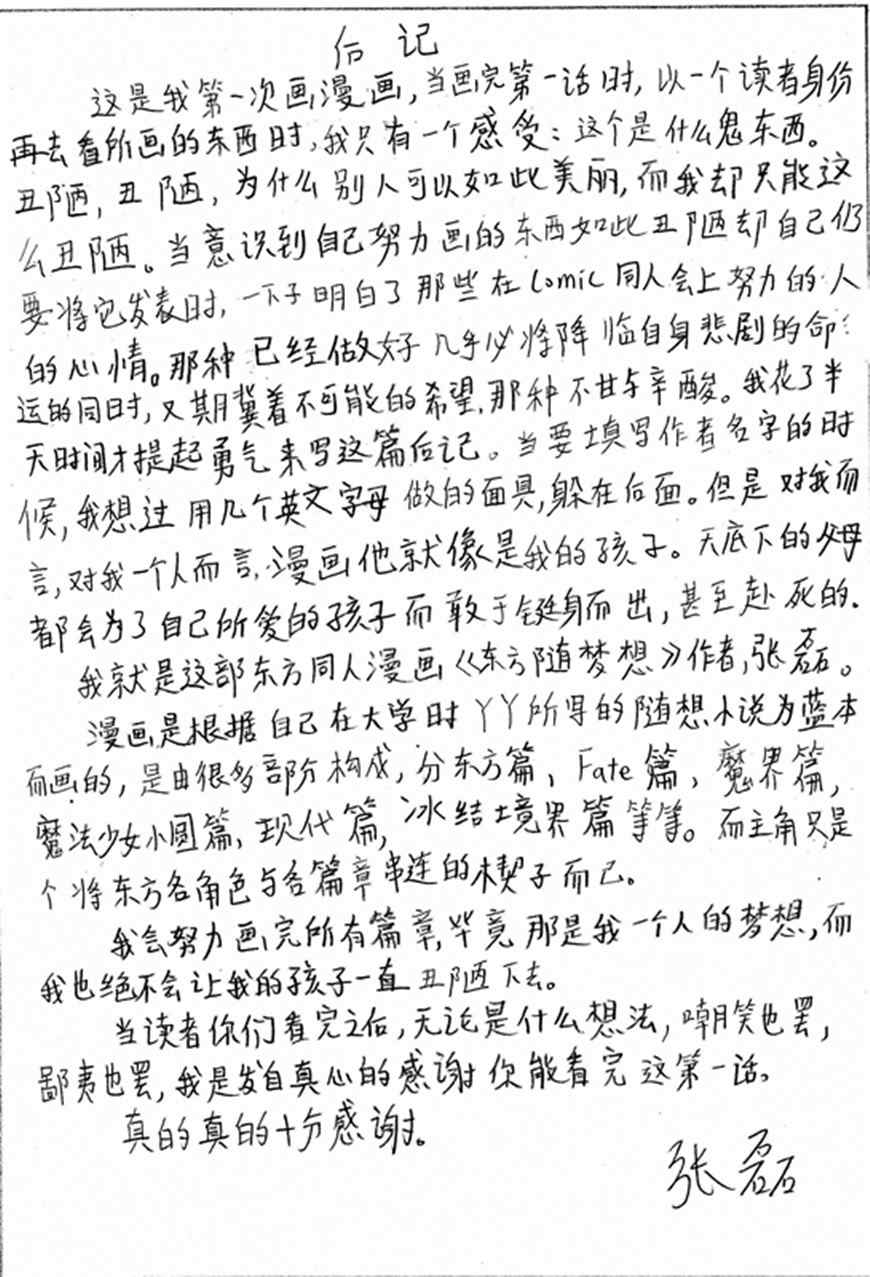 后记
这是我第一次画漫画，当画完第一话时，以一个读者身份
再去看所画的东西时，我只有一个感受：这个是什么鬼东西。
丑陋，丑陋，为什么别人可以如此美丽，而我却只能这
么丑陋。当意识到自己努力画的东西如此丑陋却自己仍
要将它发表时，一下子明白了那些在Comic同人会上努力的人
的心情。那种已经做好几乎必将降临自身悲剧的命
运的同时，又期冀着不可能的希望，那种不甘与辛酸。我花了半
天时间才提起勇气来写这篇后记。当要填写作者名字的时
候，我想过用几个英文字母做的面具，躲在后面。但是对我而
言，对我一个人而言，漫画他就像是我的孩子。天底下的父母
都会为了自己所爱的孩子而敢于铤身而出，甚至赴死的.
我就是这部东方同人漫画《东方随梦想》作者，张磊。
漫画是根据自己在大学时丫丫所写的随想小说为蓝本
而画的，是由很多部分构成，分东方篇、Fate篇、魔界篇，
魔法少女小圆篇、现代篇，冰结境界篇等等。而主角只是
个将东方各角色与各篇章串连的楔子而已。
我会努力画完所有篇章，毕竟那是我一个人的梦想，而
我也绝不会让我的孩子一直丑陋下去。
当读者你们看完之后，无论是什么想法，嘲笑也罢，
鄙夷也罢，我是发自真心的感谢你能看完这第一话。
真的真的十分感谢。
张磊